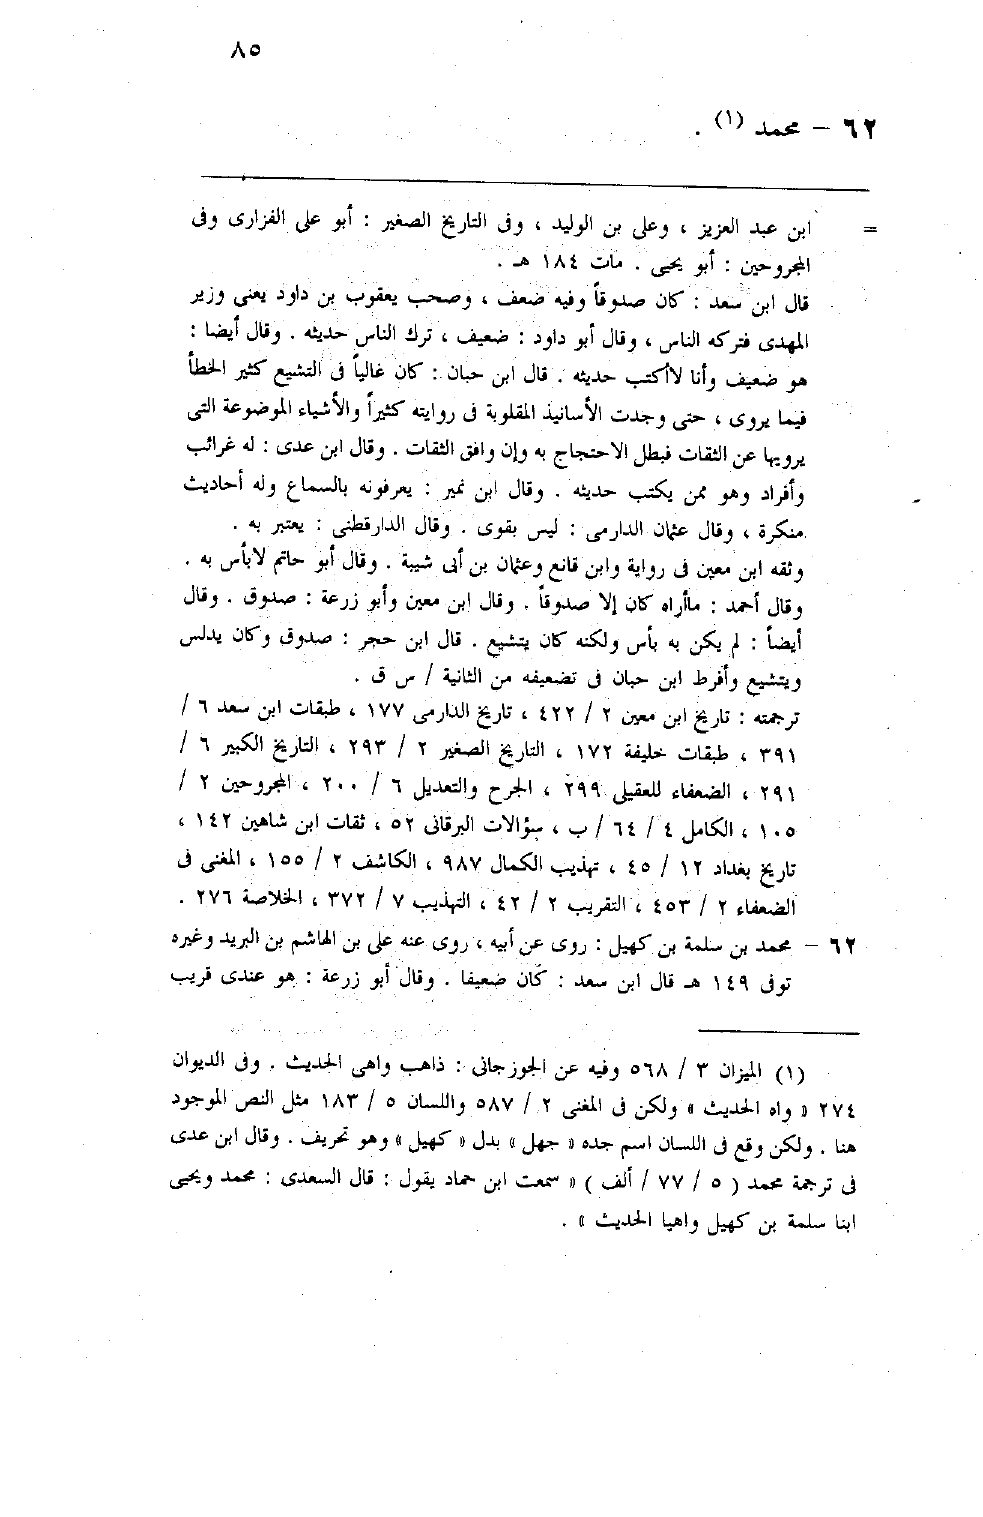 ٨٥
٦٢ – محمد (١) .
= ابن عبد العزيز ، وعلى بن الوليد ، وفى التاريخ الصغير : أبو على الفزارى وفى
المجروحين : أبو يحيى . مات ١٨٤ هـ .
قال ابن سعد : كان صدوقاً وفيه ضعف ، وصحب يعقوب بن داود يعنى وزير
المهدى فتركه الناس ، وقال أبو داود : ضعيف ، ترك الناس حديثه . وقال أيضا :
هو ضعيف وأنا لاأكتب حديثه . قال ابن حبان : كان غالياً فى التشيع كثير الخطأ
فيما يروى ، حتى وجدت الأسانيذ المقلوبة فى روايته كثيراً والأشياء الموضوعة التى
يرويها عن الثقات فبطل الاحتجاج به وإن وافق الثقات . وقال ابن عدى : له غرائب
وأفراد وهو ممن يكتب حديثه . وقال ابن نمير : يعرفونه بالسماع وله أحاديث
منكرة ، وقال عثمان الدارمى : ليس بقوى . وقال الدارقطنى : يعتبر به .
وثقه ابن معين فى رواية وابن قانع وعثمان بن أبى شيبة . وقال أبو حاتم لابأس به .
وقال أحمد : ماأراه كان إلا صدوقاً . وقال ابن معين وأبو زرعة : صدوق . وقال
أيضاً : لم يكن به بأس ولكنه كان يتشيع . قال ابن حجر : صدوق وكان يدلس
ويتشيع وأفرط ابن حبان فى تضعيفه من الثانية / س ق .
ترجمته : تاريخ ابن معين ٢ / ٤٢٢ ، تاريخ الدارمى ١٧٧ ، طبقات ابن سعد ٦ /
٣٩١ ، طبقات خليفة ١٧٢ ، التاريخ الصغير ٢ / ٢٩٣ ، التاريخ الكبير ٦ /
٢٩١ ، الضعفاء للعقيلى ٢٩٩ ، الجرح والتعديل ٦ / ٢٠٠ ، المجروحين ٢ /
١٠٥ ، الكامل ٤ / ٦٤ / ب ، سؤالات البرقانى ٥٢ ، ثقات ابن شاهين ١٤٢ ،
تاريخ بغداد ١٢ / ٤٥ ، تهذيب الكمال ٩٨٧ ، الكاشف ٢ / ١٥٥ ، المغنى فى
الضعفاء ٢ / ٤٥٣ ، التقريب ٢ / ٤٢ ، التهذيب ٧ / ٣٧٢ ، الخلاصة ٢٧٦ .
٦٢ – محمد بن سلمة بن كهيل : روى عن أبيه ، روى عنه على بن الهاشم بن البريد وغيره
توفى ١٤٩ هـ قال ابن سعد : كان ضعيفا . وقال أبو زرعة : هو عندى قريب
(١) الميزان ٣ / ٥٦٨ وفيه عن الجوزجانى : ذاهب واهى الحديث . وفى الديوان
٢٧٤ « واه الحديث » ولكن فى المغنى ٢ / ٥٨٧ واللسان ٥ / ١٨٣ مثل النص الموجود
هنا . ولكن وقع فى اللسان اسم جده « جهل » بدل « كهيل » وهو تحريف . وقال ابن عدى
فى ترجمة محمد ( ٥ / ٧٧ / ألف ) « سمعت ابن حماد يقول : قال السعدى : محمد ويحيى
ابنا سلمة بن كهيل واهيا الحديث » .